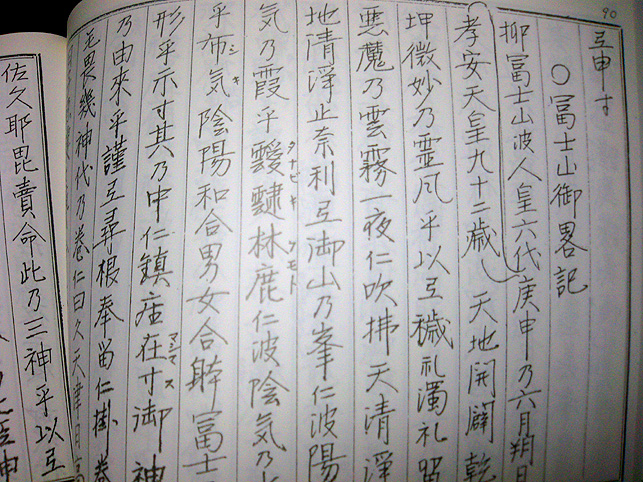 90
弖申寸
〇冨士山御畧記
抑冨士山波人皇六代庚申乃六月朔日
孝安天皇九十二歳 天地開闢乾
坤微妙乃霊風乎以弖穢礼濁礼畄
悪魔乃雲霧一夜仁吹拂天清浄
地清浄止奈利弖御山乃峯仁波陽
気乃霞乎靉靆林鹿仁波陰気乃
タナビキ フモト
乎布気陰陽和合男女合躰冨士
シキ
形乎示寸其乃中仁鎮座在寸御神
マシマス
乃由來乎謹弖尋根奉畄仁掛巻
畏幾神代乃巻仁曰久天津日
佐久耶毘賣命此乃三神乎以弖